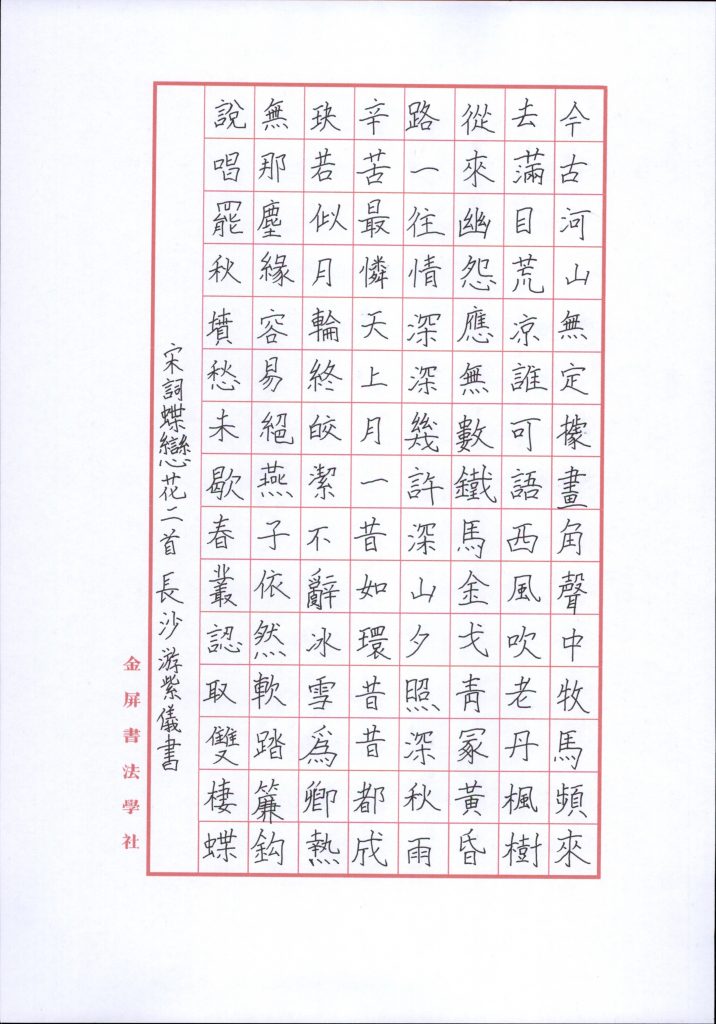 今古河山無定據畫角聲中牧馬頻來
去滿目荒凉誰可語西風吹老丹楓樹
從來幽怨應無數鐵馬金戈青冢黃昏
路一往情深深幾許深山夕照深秋雨
辛苦最憐天上月一昔如環昔昔都成
玦若似月輪終皎潔不辭冰雪爲卿熱
無那塵緣容易絕燕子依然軟踏簾鈎
說唱罷秋墳愁未歇春叢認取雙棲蝶
宋詞蝶戀花二首 長沙游紫儀書
金屏書法學社